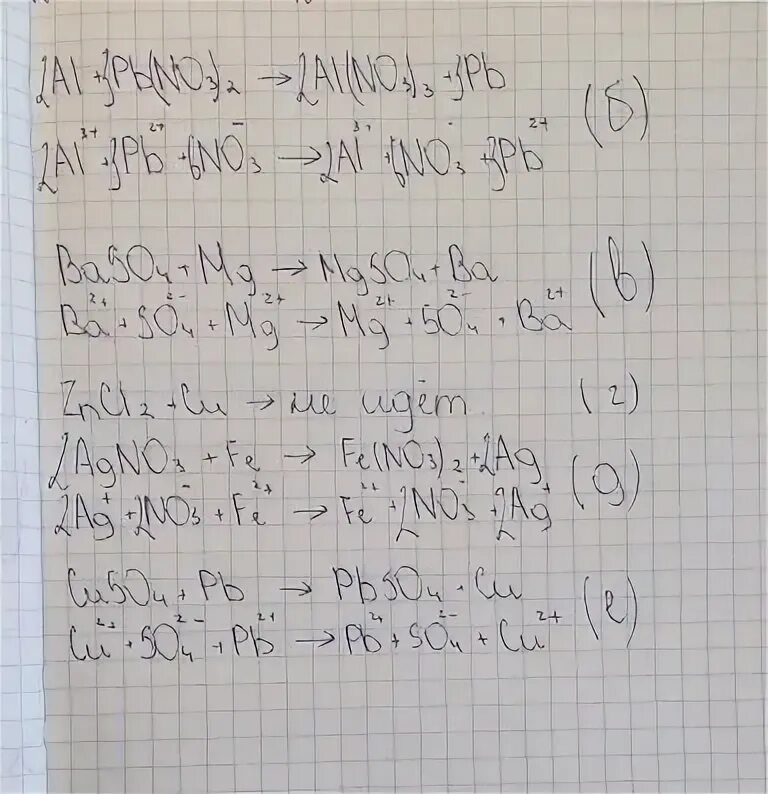 2Al + 3Pb(NO₃)₂ → 2Al(NO₃)₃ + 3Pb (б)
2Al³⁺ + 3Pb²⁺ + 6NO₃⁻ → 2Al³⁺ + 6NO₃⁻ + 3Pb²⁺
BaSO₄ + Mg → MgSO₄ + Ba (в)
Ba²⁺ + SO₄²⁻ + Mg²⁺ → Mg²⁺ + SO₄²⁻ + Ba²⁺
ZnCl₂ + Cu → не идёт (г)
2AgNO₃ + Fe → Fe(NO₃)₂ + 2Ag (д)
2Ag⁺ + 2NO₃⁻ + Fe²⁺ → Fe²⁺ + 2NO₃⁻ + 2Ag⁺
CuSO₄ + Pb → PbSO₄ + Cu (е)
Cu²⁺ + SO₄²⁻ + Pb²⁺ → Pb²⁺ + SO₄²⁻ + Cu²⁺